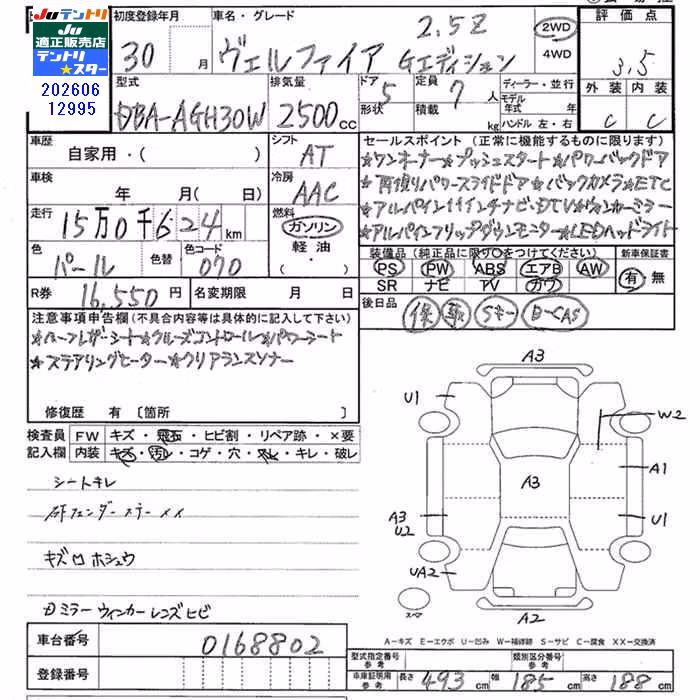 Juテントリ
Juテントリ
適正販売店
テントリ
★スター
202606
12995
初度登録年月
30 月
車名・グレード
ヴェルファイア 2.5Z
Gエディション
2WD
4WD
評価点
3.5
外装 内装
C C
型式
DBA-AGH30W
排気量
2500cc
ドア 5
形状
定員 7 人
積載 kg
ディーラー・並行
モデル年式 年
ハンドル 左・右
車歴
自家用・( )
シフト
AT
車検
年 月( 日)
冷房
AAC
走行
15万0千624km
燃料
ガソリン
軽油
・( )
色
パール
色替
色コード
070
R券 16,550円
名変期限 月 日
セールスポイント (正常に機能するものに限ります)
★ワンオーナー★プッシュスタート★パワーバックドア
★両側パワースライドドア★バックカメラ★ETC
★アルパイン11インチナビ・DTV★ウィンカーミラー
★アルパインフリップダウンモニター★LEDヘッドライト
装備品 (純正品に限り○をつけてください)
PS PW ABS エアB AW
SR ナビ TV カワ
新車保証書
有・無
後日品
保 取 Sキー B-CAS
注意事項申告欄 (不具合内容等は具体的に記入して下さい)
★ハーフレザーシート★クルーズコントロール★パワーシート
★ステアリングヒーター★クリアランスソナー
修復歴 有 [箇所 ]
検査員
記入欄
FW キズ・飛石・ヒビ割・リペア跡・×要
内装 キズ・汚レ・コゲ・穴・スレ・キレ・破レ
シートキレ
右Fフェンダーステーメイ
キズ凹ホシュウ
右ミラーウィンカーレンズヒビ
A3
U1
W2
A1
A3
A3
U2
U1
UA2
A2
スペア
A－キズ E－エクボ U－凹み W－補修跡 S－サビ C－腐食 XX－交換済
車台番号
0168802
登録番号
型式指定番号
参考
類別区分番号
参考
車庫証明用
参考
長さ 493 cm
幅 185 cm
高さ 188 cm